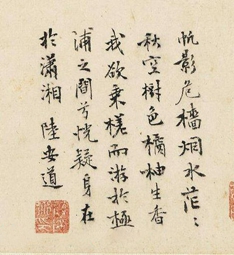 帆影危檣烟水茫〻
秋空樹色橘柚生香
我欲乘槎而游於極
浦之間兮恍疑身在
於瀟湘 陸安道